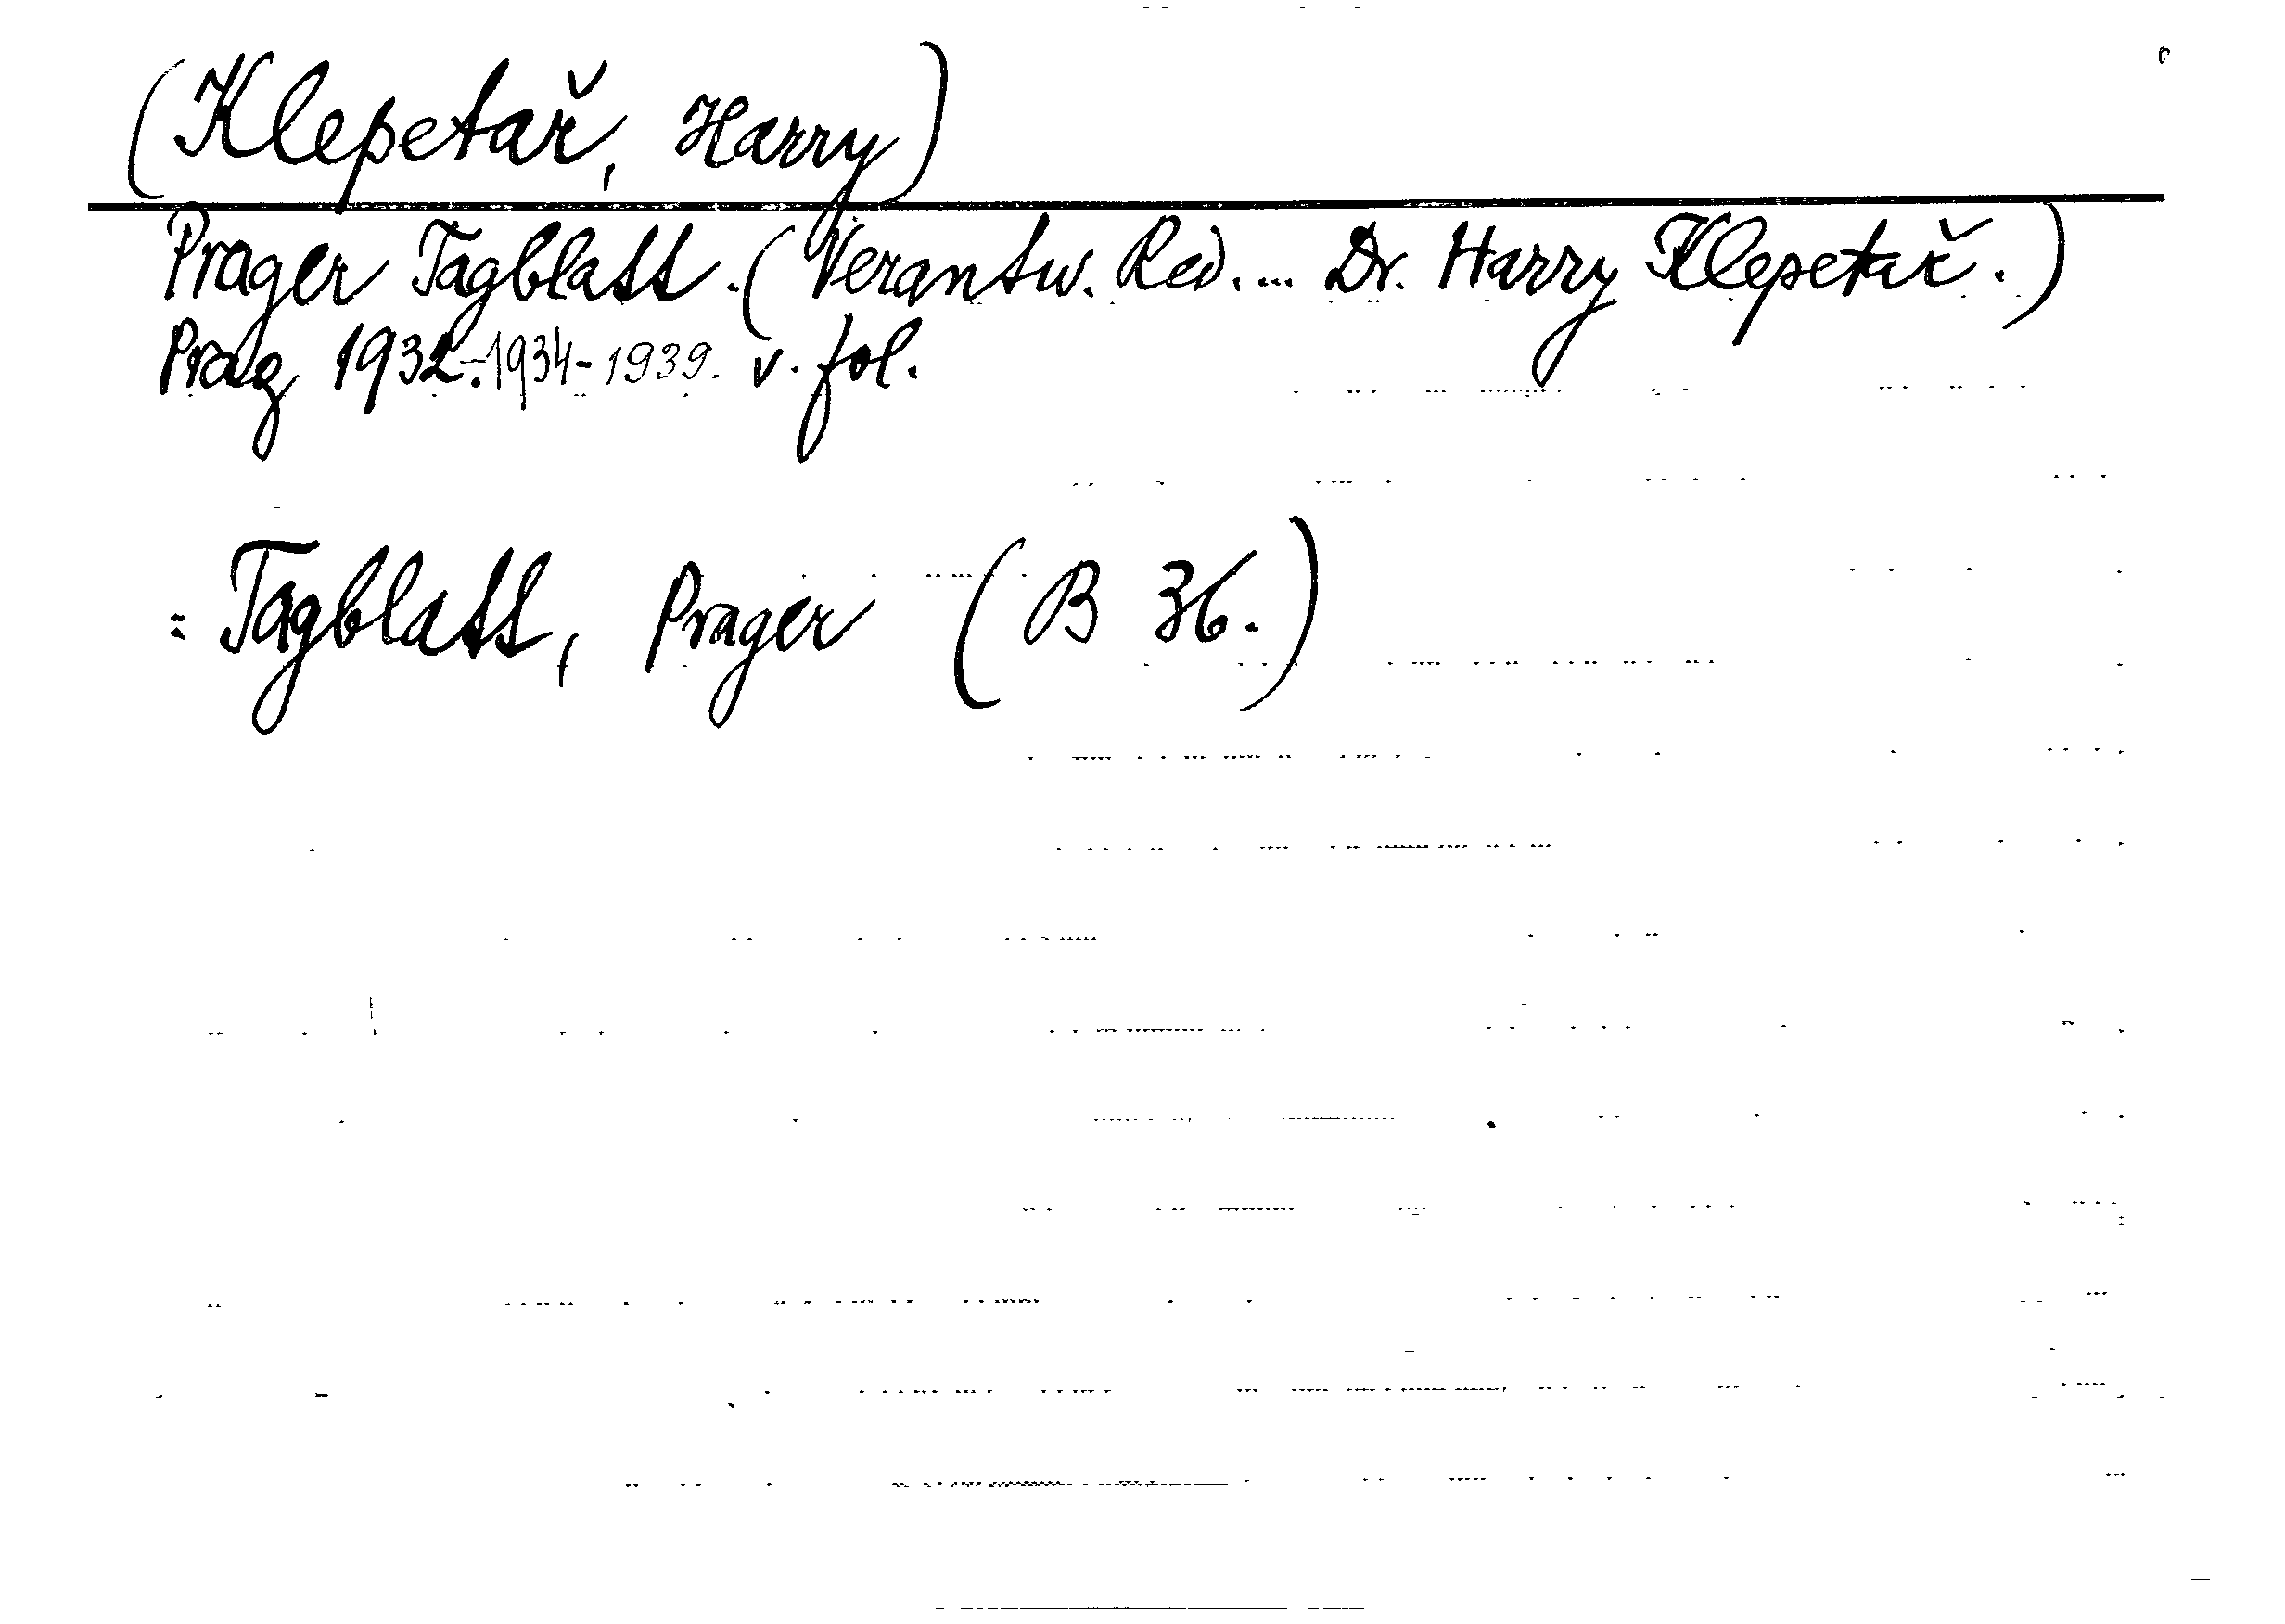 (Klepetař, Harry)
Prager Tagblatt. (Verantw. Red. ... Dr. Harry Klepetař.)
Prag 1932.-1934-1939. v. fol.
= Tagblatt, Prager (B 36.)